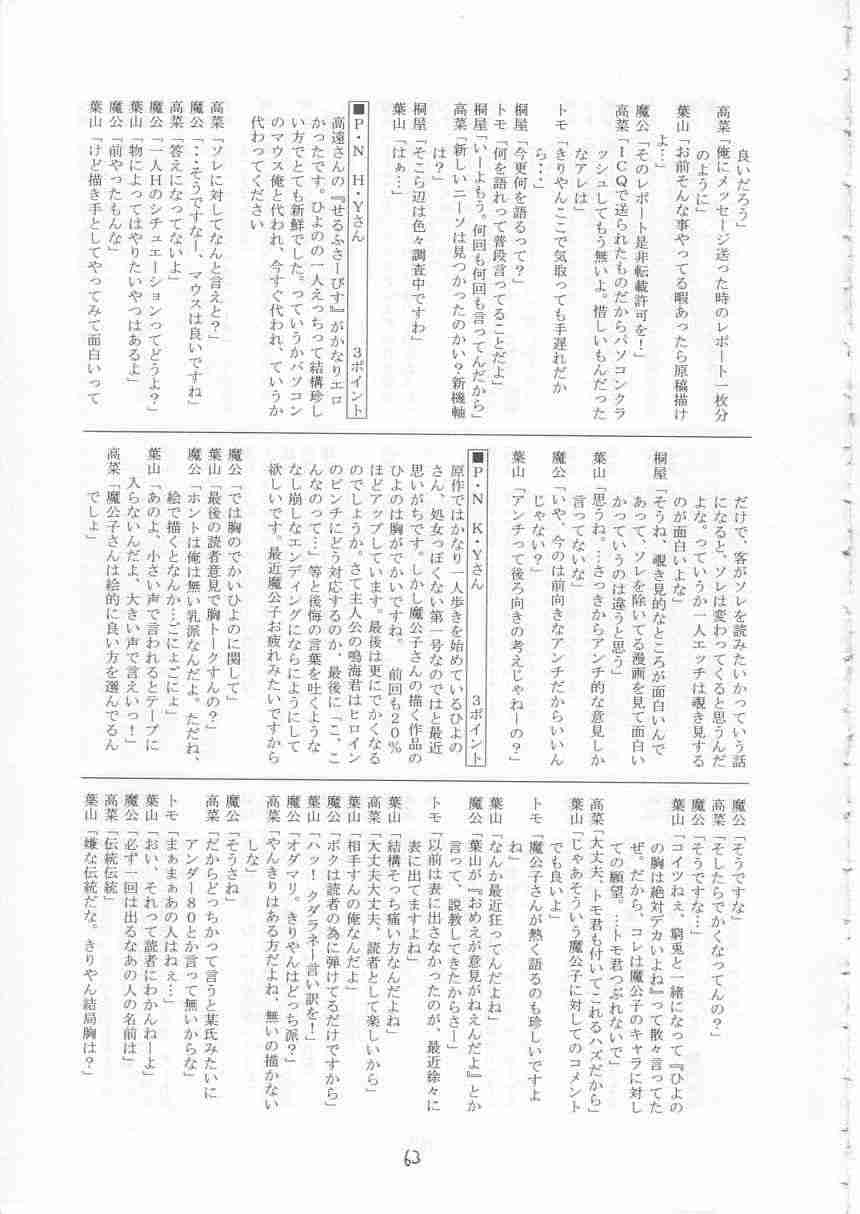 良いだろう」
高菜「俺にメッセージ送った時のレポート一枚分
のように」
葉山「お前そんな事やってる暇あったら原稿描け
よ…」
魔公「そのレポート是非転載許可を！」
高菜「ＩＣＱで送られたものだからパソコンクラ
ッシュしてもう無いよ。惜しいもんだった
なアレは」
トモ「きりやんここで気取っても手遅れだか
ら・・」
桐屋「今更何を語るって？」
トモ「何を語れって普段言ってることだよ」
桐屋「いーよもう。何回も何回も言ってんだから」
高菜「新しいニーソは見つかったのかい？新機軸
は？」
桐屋「そこら辺は色々調査中ですわ」
葉山「はぁ…」
■Ｐ・Ｎ　Ｈ・Ｙさん　３ポイント
高遠さんの『せるふさーびす』がかなりエロ
かったです。ひよのの一人えっちって結構珍し
い方でとても新鮮でした。っていうかパソコン
のマウス俺と代われ、今すぐ代われ、ていうか
代わってください
高菜「ソレに対してなんと言えと？」
魔公「・・・そうですなー、マウスは良いですね」
高菜「答えになってないよ」
魔公「一人Ｈのシチュエーションってどうよ？」
葉山「物によってはやりたいやつはあるよ」
魔公「前やったもんな」
葉山「けど描き手としてやってみて面白いって
だけで、客がソレを読みたいかっていう話
になると、ソレは変わってくると思うんだ
よな。っていうか一人エッチは覗き見する
のが面白いよな」
桐屋「そうね、覗き見的なところが面白いんで
あって、ソレを除いてる漫画を見て面白い
かっていうのは違うと思う」
葉山「思うね。…さっきからアンチ的な意見しか
言ってないな」
魔公「いや、今のは前向きなアンチだからいいん
じゃない？」
葉山「アンチって後ろ向きの考えじゃねーの？」
■Ｐ・Ｎ　Ｋ・Ｙさん　３ポイント
原作ではかなり一人歩きを始めているひよの
さん、処女っぽくない第一号なのではと最近
思いがちです。しかし魔公子さんの描く作品の
ひよのは胸がでかいですね。　前回も２０％
ほどアップしています。最後は更にでかくなる
のでしょうか。さて主人公の鳴海君はヒロイン
のピンチにどう対応するのか、最後に「こ、こ
んなのって…」等と後悔の言葉を吐くような
なし崩しなエンディングにならにようにして
欲しいです。最近魔公子お疲れみたいですから
魔公「では胸のでかいひよのに関して」
葉山「最後の読者意見で胸トークすんの？」
魔公「ホントは俺は無い乳派なんだよ。ただね、
絵で描くとなんか…ごにょごにょ」
葉山「あのよ、小さい声で言われるとテープに
入らないんだよ、大きい声で言えいっ！」
高菜「魔公子さんは絵的に良い方を選んでるん
でしょ」
魔公「そうですな」
高菜「そしたらでかくなってんの？」
魔公「そうですな…」
葉山「コイツねぇ、窮兎と一緒になって『ひよの
の胸は絶対デカいよね』って散々言ってた
ぜ。だから、コレは魔公子のキャラに対し
ての願望。…トモ君つぶれないで」
高菜「大丈夫、トモ君も付いてこれるハズだから」
葉山「じゃあそういう魔公子に対してのコメント
でも良いよ」
トモ「魔公子さんが熱く語るのも珍しいですよ
ね」
葉山「なんか最近狂ってんだよね」
魔公「葉山が『おめえが意見がねえんだよ』とか
言って、説教してきたからさー」
トモ「以前は表に出さなかったのが、最近徐々に
表に出てますよね」
葉山「結構そっち痛い方なんだよね」
高菜「大丈夫大丈夫、読者として楽しいから」
葉山「相手すんの俺なんだよ」
魔公「ボクは読者の為に弾けてるだけですから」
葉山「ハッ！クダラネー言い訳を！」
魔公「オダマリ。きりやんはどっち派？」
高菜「やんきりはある方だよね、無いの描かない
しな」
魔公「そうさね」
高菜「だからどっちかって言うと某氏みたいに
アンダー８０とか言って無いからな」
トモ「まぁまぁあの人はねぇ…」
葉山「おい、それって読者にわかんねーよ」
魔公「必ず一回は出るなあの人の名前は」
高菜「伝統伝統」
葉山「嫌な伝統だな。きりやん結局胸は？」
63